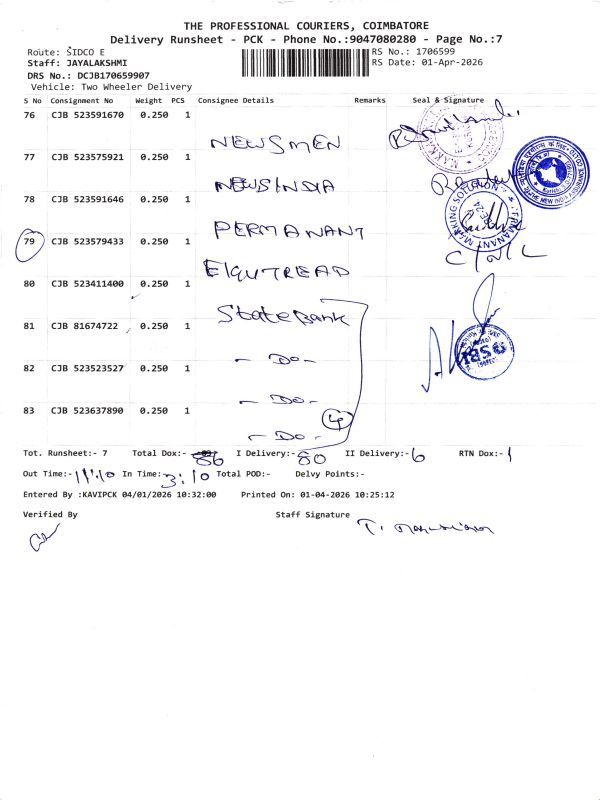 THE PROFESSIONAL COURIERS, COIMBATORE
Delivery Runsheet - PCK - Phone No.:9047080280 - Page No.:7
Route: SIDCO E RS No.: 1706599
Staff: JAYALAKSHMI RS Date: 01-Apr-2026
DRS No.: DCJB170659907
Vehicle: Two Wheeler Delivery
S No Consignment No Weight PCS Consignee Details Remarks Seal & Signature
76 CJB 523591670 0.250 1
NEWSMEN
77 CJB 523575921 0.250 1
NEWSINDIA
78 CJB 523591646 0.250 1
PERMANANT
79 CJB 523579433 0.250 1
C/NL
80 CJB 523411400 0.250 1
State Bank
81 CJB 81674722 0.250 1
- Do -
82 CJB 523523527 0.250 1
- Do -
83 CJB 523637890 0.250 1
4
- Do -
SBI
Tot. Runsheet:- 7 Total Dox:- 86 I Delivery:- 80 II Delivery:- 6 RTN Dox:- 1
Out Time:- 11:10 In Time:- 3:10 Total POD:- Delvy Points:-
Entered By :KAVIPCK 04/01/2026 10:32:00 Printed On: 01-04-2026 10:25:12
Verified By Staff Signature